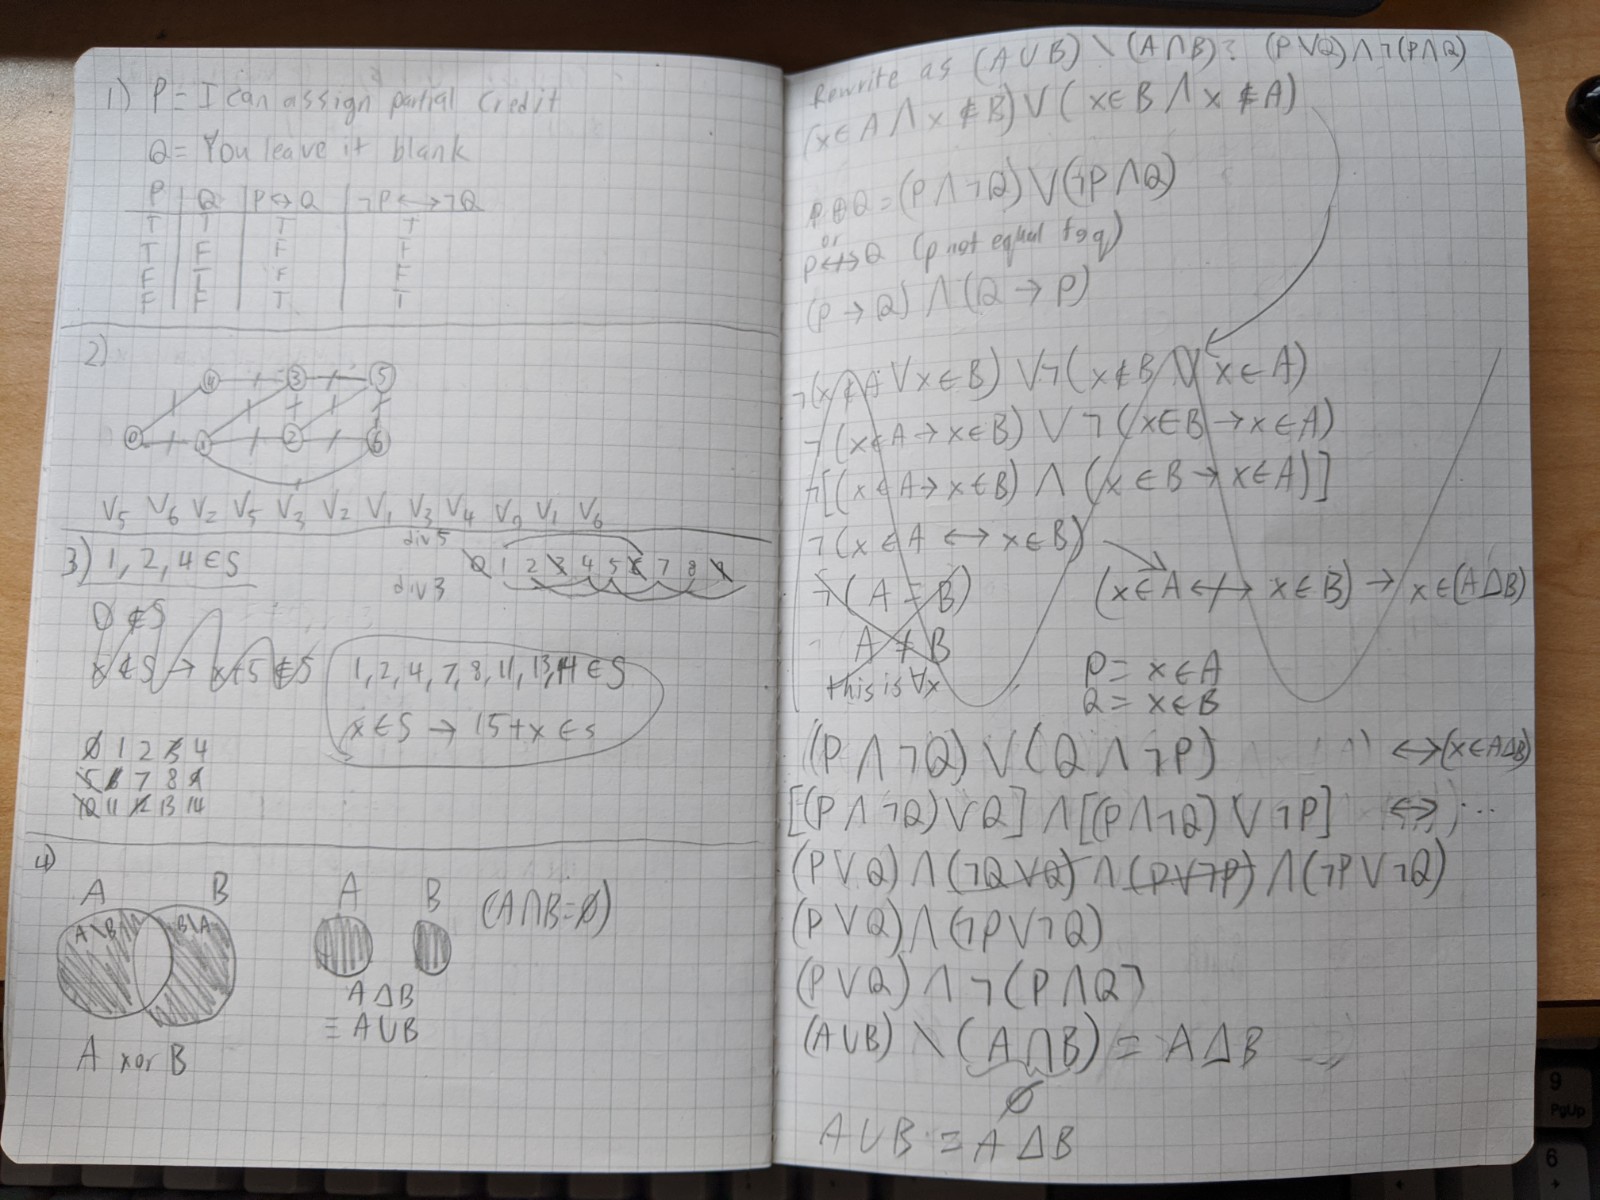 1) P = I can assign partial credit
Q = You leave it blank
P Q P↔Q ¬P↔¬Q
T T T T
T F F F
F T F F
F F T T
2)
4 3 5
0 1 2 6
V5 V6 V2 V5 V3 V2 V1 V3 V4 V0 V1 V6
3) 1, 2, 4 ∈ S
div 5
0 1 2 3 4 5 6 7 8 9
div 3
0 ∉ S
x ∉ S → x+5 ∉ S
1, 2, 4, 7, 8, 11, 13, 14 ∈ S
x ∈ S → 15+x ∈ s
0 1 2 3 4
5 6 7 8 9
10 11 12 13 14
4)
A B
A\B B\A
A xor B
A B (A∩B=∅)
A Δ B
≡ A ∪ B
Rewrite as (A∪B) \ (A∩B)? (P∨Q)∧¬(P∧Q)
(x∈A ∧ x∉B) ∨ (x∈B ∧ x∉A)
P⊕Q = (P∧¬Q) ∨ (¬P∧Q)
or
P↮Q (p not equal to q)
(P→Q) ∧ (Q→P)
¬(x∉A ∨ x∈B) ∨ ¬(x∉B ∨ x∈A)
¬(x∈A → x∈B) ∨ ¬(x∈B → x∈A)
¬[(x∈A → x∈B) ∧ (x∈B → x∈A)]
¬(x∈A ↔ x∈B)
(x∈A ↮ x∈B) → x∈(AΔB)
¬(A = B)
A ≠ B
this is ∀x
P = x∈A
Q = x∈B
(P∧¬Q) ∨ (Q∧¬P) ↔ (x∈AΔB)
[(P∧¬Q)∨Q] ∧ [(P∧¬Q)∨¬P] ↔ ...
(P∨Q) ∧ (¬Q∨Q) ∧ (P∨¬P) ∧ (¬P∨¬Q)
(P∨Q) ∧ (¬P∨¬Q)
(P∨Q) ∧ ¬(P∧Q)
(A∪B) \ (A∩B) = AΔB
∅
A∪B ≡ AΔB